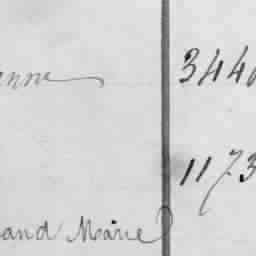 enne 344
1173
and Marie